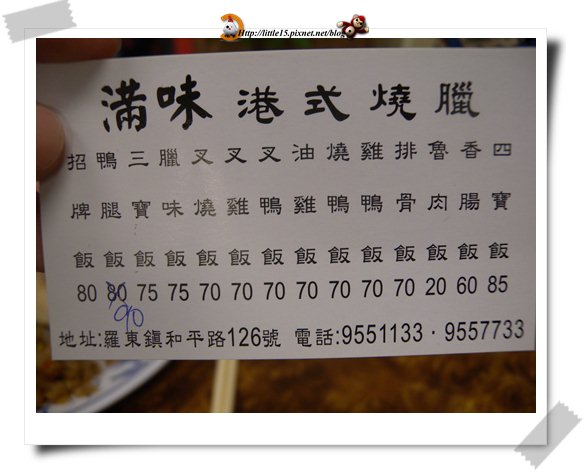 Http://little15.pixnet.net/blog
滿味 港式燒臘
招 鴨 三 臘 叉 叉 叉 油 燒 雞 排 魯 香 四
牌 腿 寶 味 燒 雞 鴨 雞 鴨 鴨 骨 肉 腸 寶
飯 飯 飯 飯 飯 飯 飯 飯 飯 飯 飯 飯 飯 飯
80 80 75 75 70 70 70 70 70 70 70 20 60 85
90
地址:羅東鎮和平路126號 電話:9551133·9557733